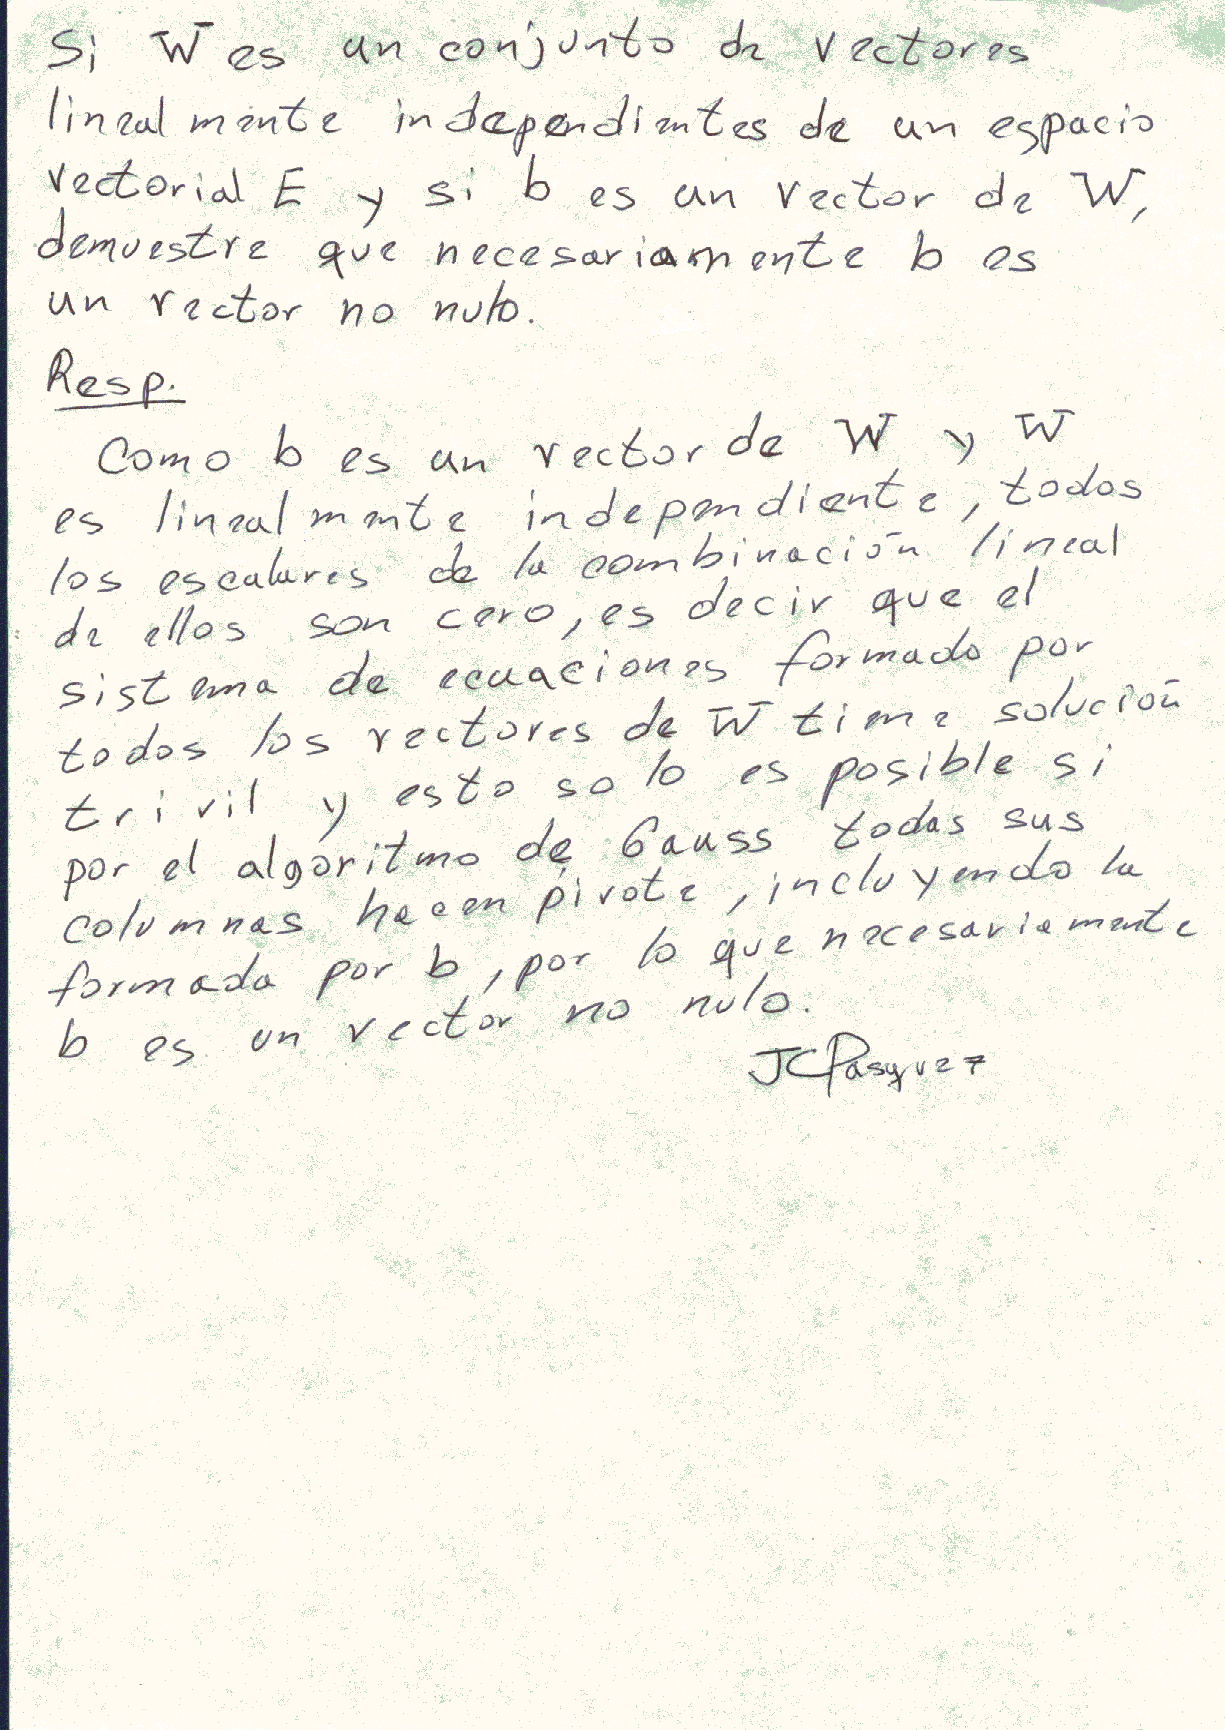 Si W es un conjunto de vectores
linealmente independientes de un espacio
vectorial E y si b es un vector de W,
demuestre que necesariamente b es
un vector no nulo.
Resp.
Como b es un vector de W y W
es linealmente independiente, todos
los escalares de la combinación lineal
de ellos son cero, es decir que el
sistema de ecuaciones formado por
todos los vectores de W tiene solución
trivil y esto solo es posible si
por el algoritmo de Gauss todas sus
columnas hacen pivote, incluyendo la
formada por b, por lo que necesariamente
b es un vector no nulo.